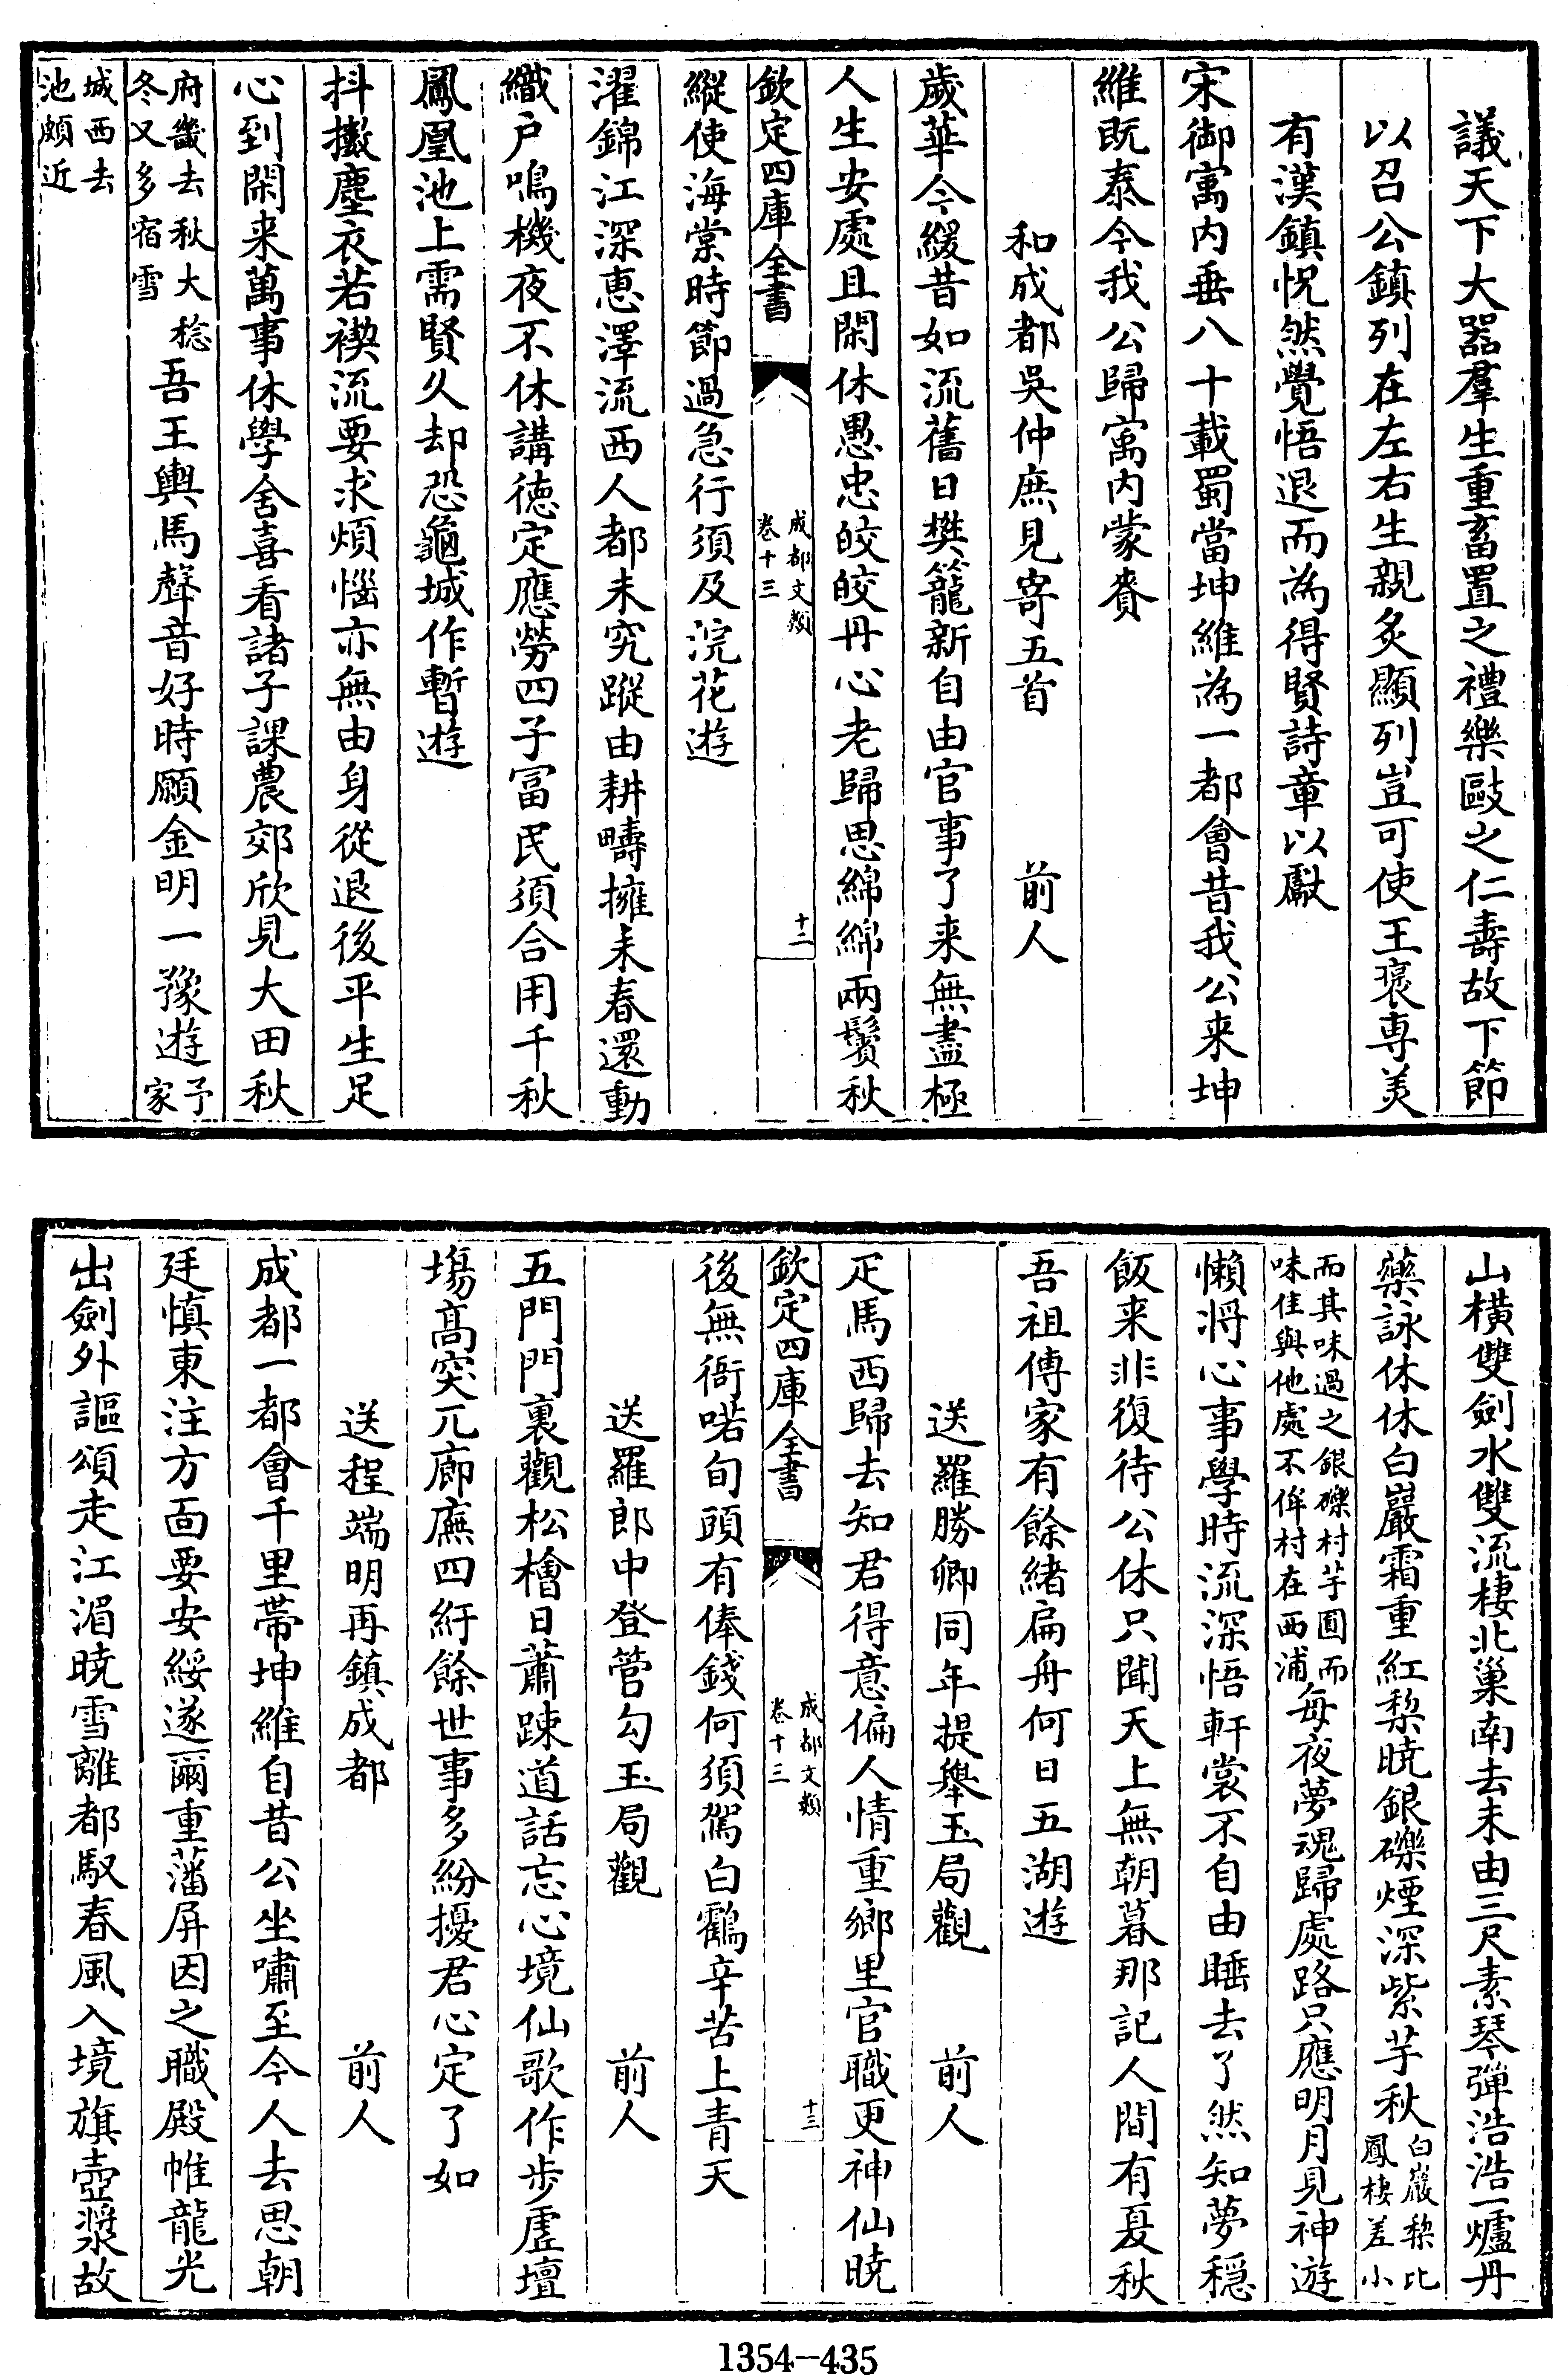 議天下大器羣生重畜置之禮樂歐之仁壽故下節
以召公鎮列在左右生親炙顯列豈可使王襃専美
有漢鎮怳然覺悟退而為得賢詩章以獻
宋御寓内垂八十載蜀當坤維為一都會昔我公来坤
維既泰今我公歸寓内蒙賚
和成都吳仲庶見寄五首 前人
歲華今緩昔如流舊日樊籠新自由官事了来無盡極
人生安處且閑休愚忠皎皎丹心老歸思綿綿兩鬢秋
欽定四庫全書 成都文類 卷十三 十二
縱使海棠時節過急行須及浣花遊
濯錦江深恵澤流西人都未究蹤由耕疇擁耒春還動
織戶鳴機夜不休講徳定應勞四子冨民須合用千秋
鳳凰池上需賢久却恐龜城作暫遊
抖擻塵衣若禊流要求煩惱亦無由身從退後平生足
心到閑来萬事休學舍喜看諸子課農郊欣見大田秋
府畿去秋大稔
冬又多宿雪
吾王輿馬聲音好時願金明一豫遊
予
家
城西去
池頗近
山横雙劍水雙流棲北巢南去未由三尺素琴彈浩浩一爐丹
藥詠休休白巖霜重紅棃暁銀礫煙深紫芋秋
白巖棃比
鳳棲差小
而其味過之銀礫村芋圓而
味佳與他處不侔村在西浦
每夜夢魂歸處路只應明月見神遊
懶将心事學時流深悟軒裳不自由睡去了然知夢穩
飯来非復待公休只聞天上無朝暮那記人間有夏秋
吾祖傳家有餘緒扁舟何日五湖遊
送羅勝卿同年提舉玉局觀 前人
疋馬西歸去知君得意偏人情重鄉里官職更神仙暁
欽定四庫全書 成都文類 卷十三 十三
後無衙喏旬頭有俸錢何須駕白鸖辛苦上青天
送羅郎中登管勾玉局觀 前人
五門門裏觀松檜日蕭踈道話忘心境仙歌作步虛壇
塲髙突兀廊廡四紆餘世事多紛擾君心定了如
送程端明再鎮成都 前人
成都一都會千里帶坤維自昔公坐嘯至今人去思朝
廷慎東注方面要安綏遂爾重藩屏因之職殿帷龍光
出劍外謳頌走江湄暁雪離都馭春風入境旗壺漿故
1354—435